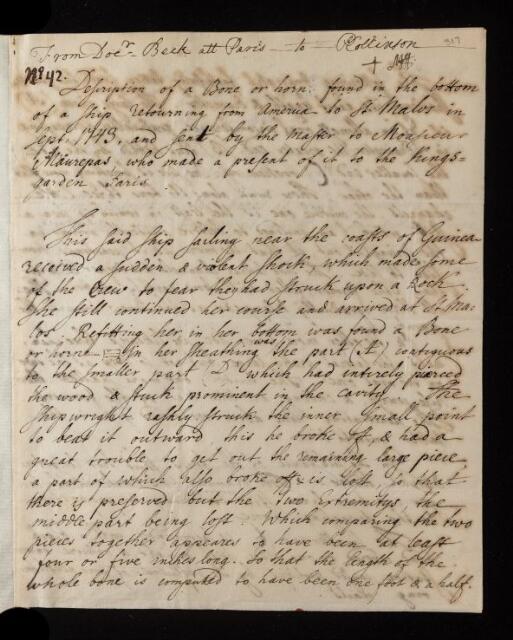 From Docr. Beek att Paris to PCollinson 317
No 42.
Description of a Bone or horn: found in the bottom
of a ship retourning from America to St. Malos in
Sept. 1743, and sent by the Master to Monsieur
Maurepas who made a present of it to the Kings=
garden Paris
This said ship sailing near the coasts of Guinea
received a sudden & violent shock, which made some
of the Crew to fear they had struck upon a Rock.
She still continued her course and arrived at St. Ma-
los Refitting her in her bottom was found a Bone
or horne In her sheathing was the part (A) contiguous
to the smaller part (D which had intirely pierced
the wood & stuck prominent in the cavity. The
Shipwright rashly struck the inner small point
to beat it outward, this he broke off, & had a
great trouble to get out the remaining large piece,
a part of which also broke off & is lost, so that
there is preserved but the two Extremitys, the
middle part being lost. Which comparing the two
pieces together appeares to have been at least
four or five inches long. So that the length of the
whole bone is computed to have been one foot & a half.